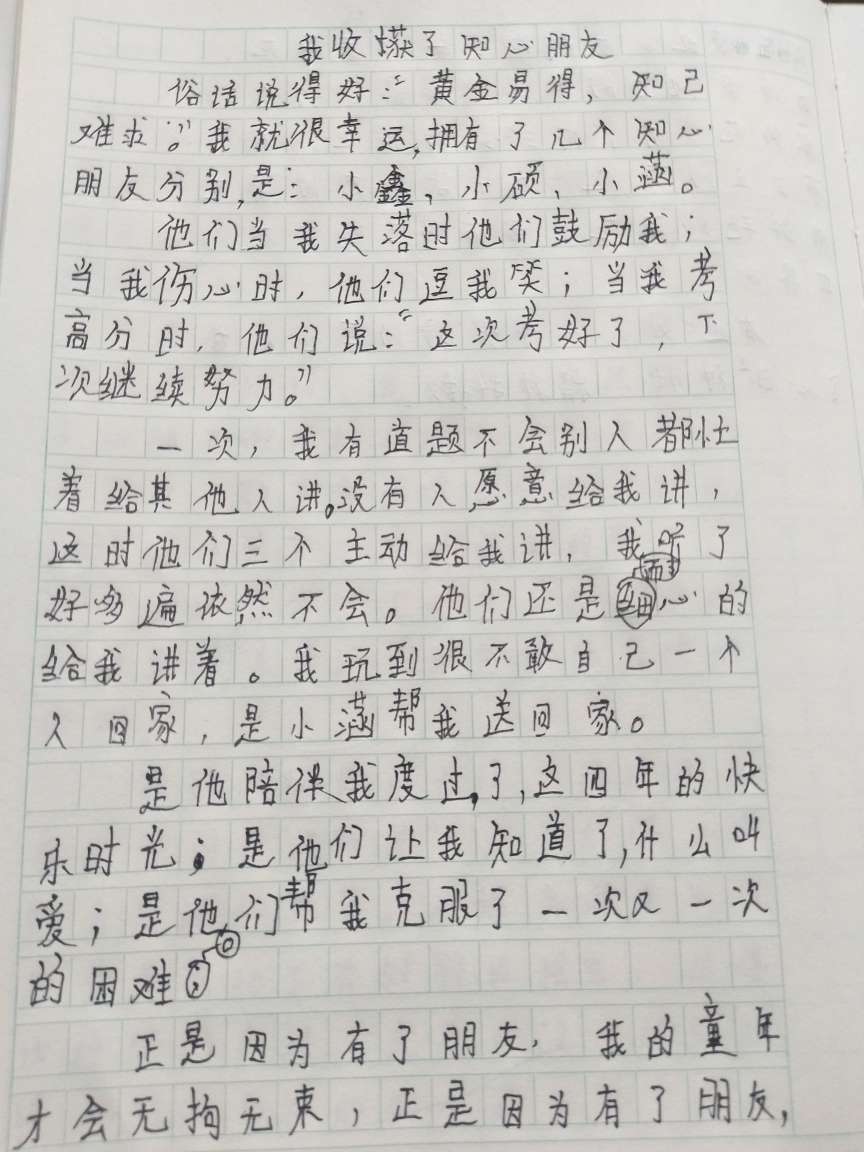 我收获了知心朋友
俗话说得好:“黄金易得,知己
难求。”我就很幸运,拥有了几个知心
朋友分别,是:小鑫,小硕、小涵。
他们当我失落时他们鼓励我;
当我伤心时,他们逗我笑;当我考
高分时,他们说:“这次考好了,下
次继续努力。”
一次,我有道题不会别人都忙
着给其他人讲。没有人愿意给我讲,
这时他们三个主动给我讲,我听了
好多遍依然不会。他们还是耐心的
给我讲着。我玩到很不敢自己一个
人回家,是小涵帮我送回家。
是他陪伴我度过,了,这四年的快
乐时光;是他们让我知道了,什么叫
爱;是他们帮我克服了一次又一次
的困难。
正是因为有了朋友,我的童年
才会无拘无束,正是因为有了朋友,